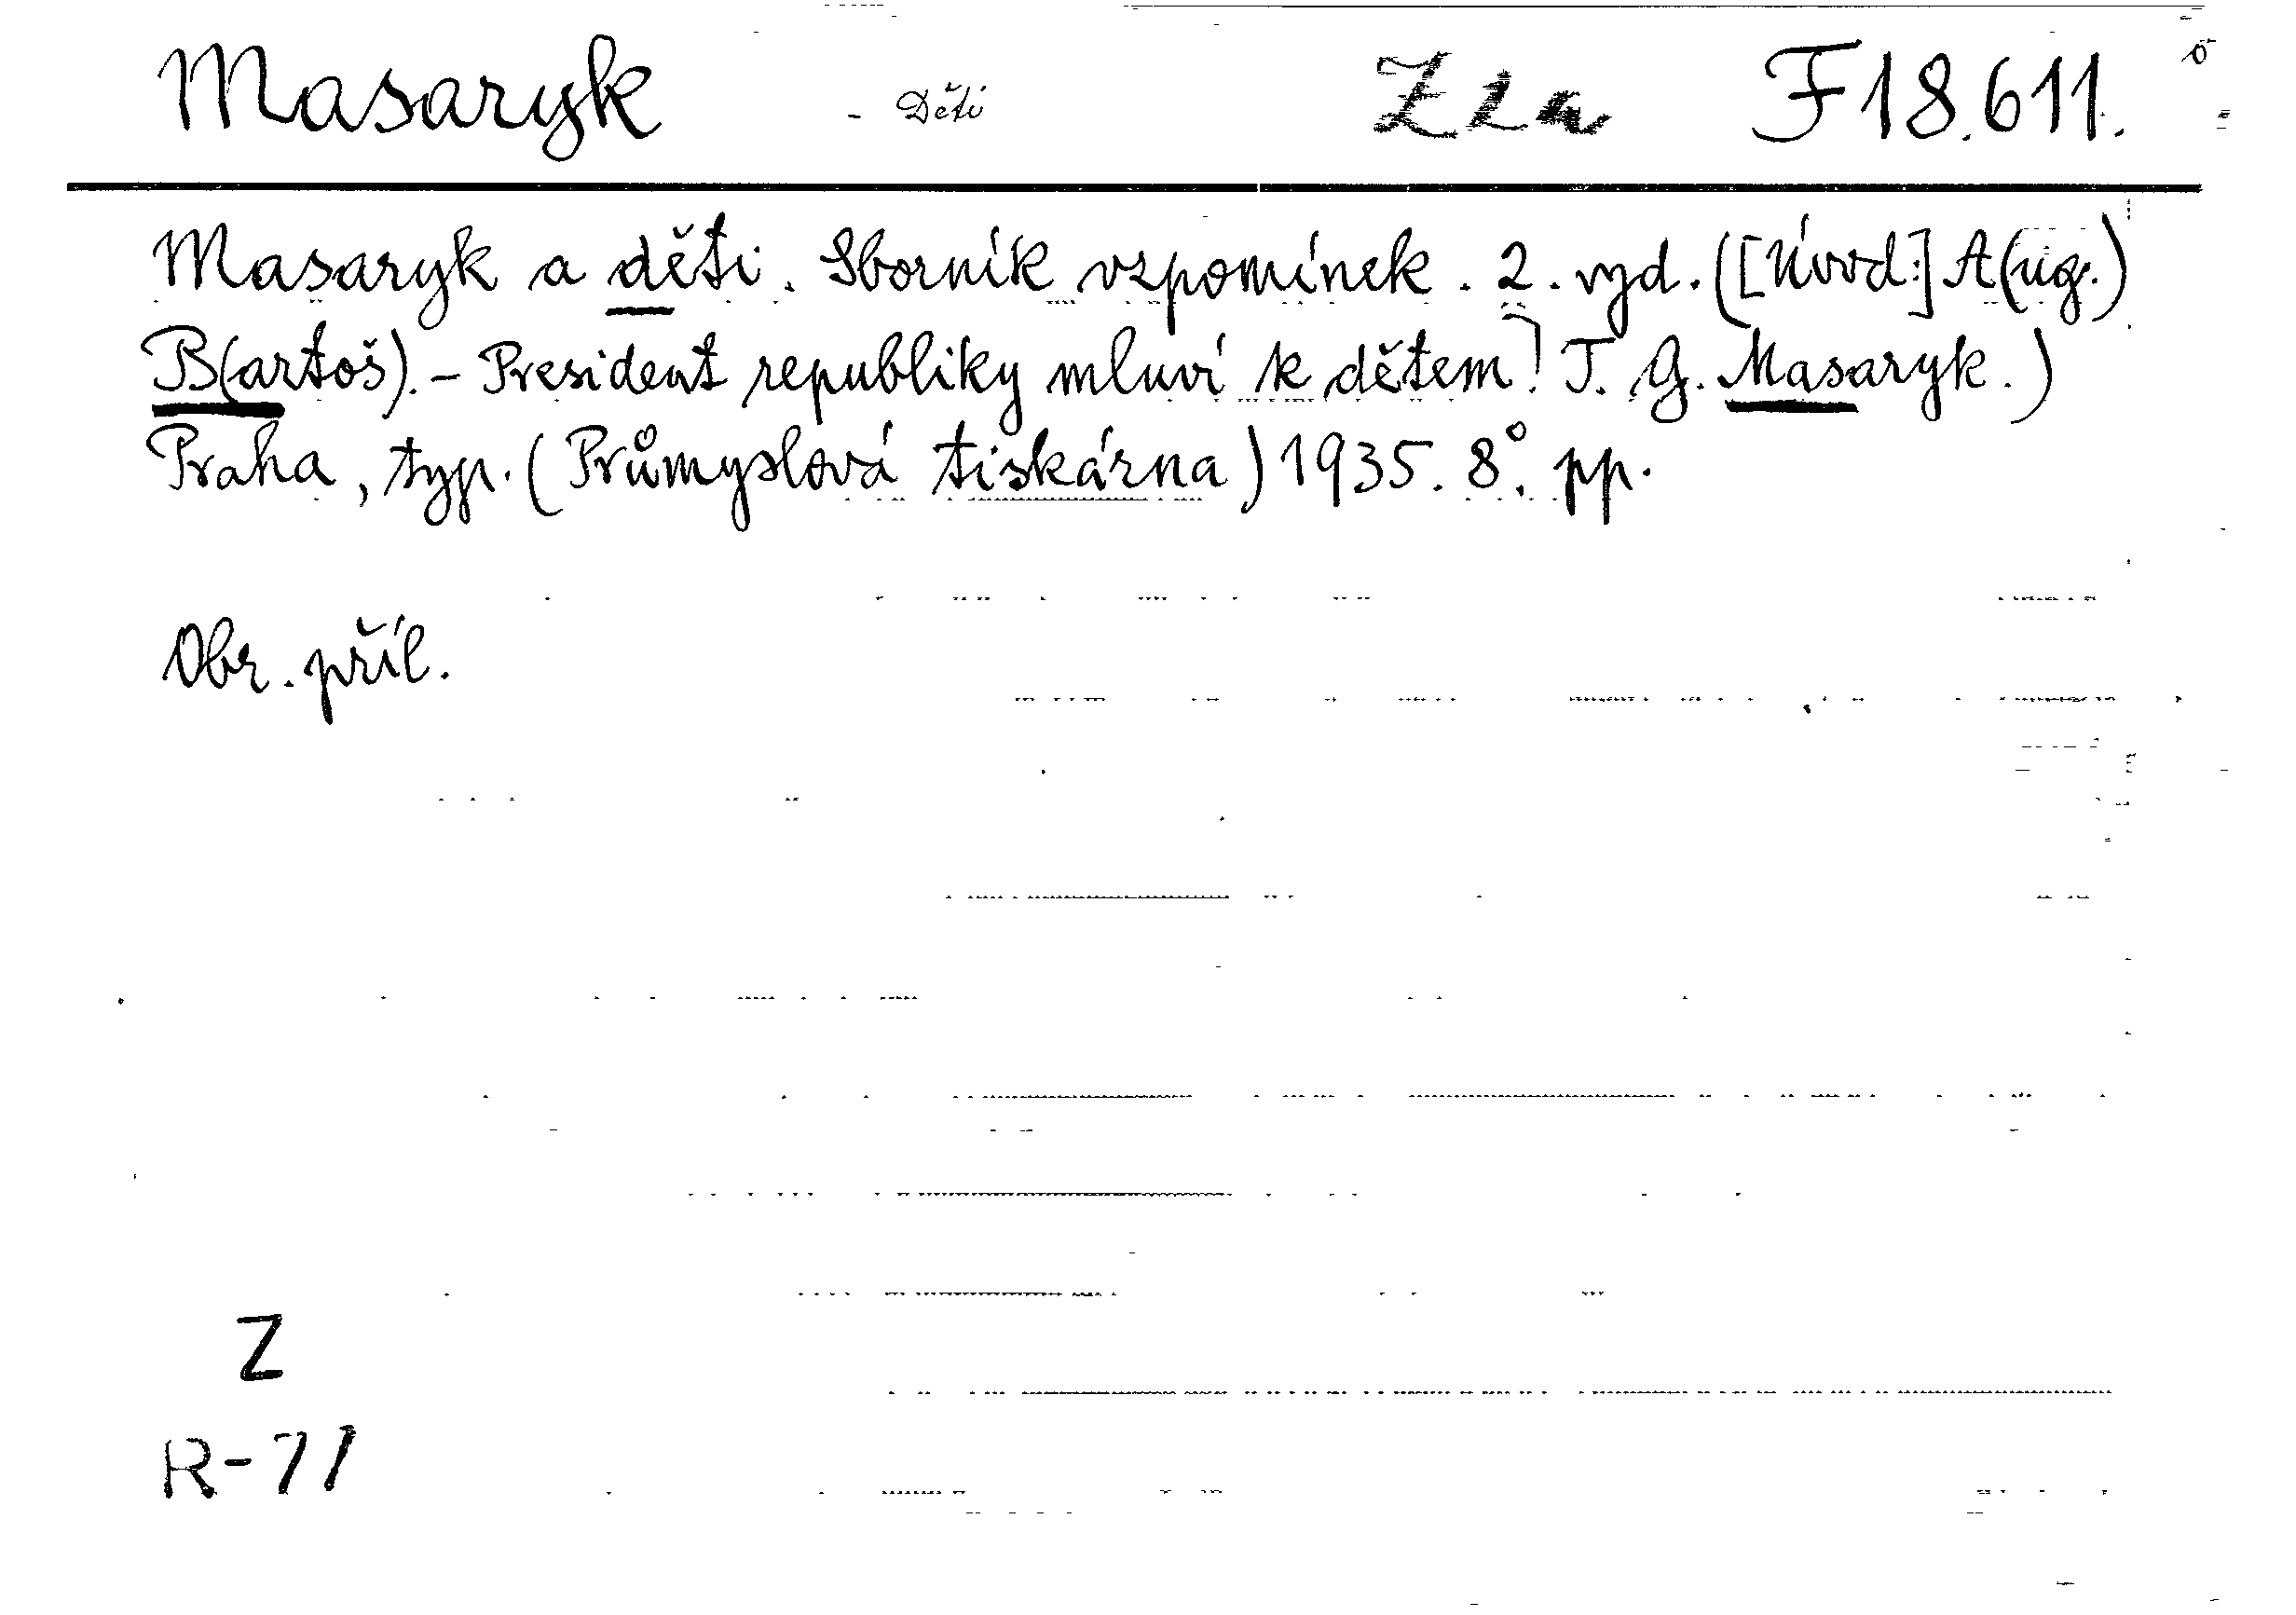 Masaryk - Děti Z2a F18.611.
Masaryk a děti. Sborník vzpomínek. 2. vyd. ([Úvod:] A(ug.)
B(artoš). - President republiky mluví k dětem! T. G. Masaryk.)
Praha, typ. (Průmyslová tiskárna) 1935. 8°. pp.
Obr. příl.
Z
R-71